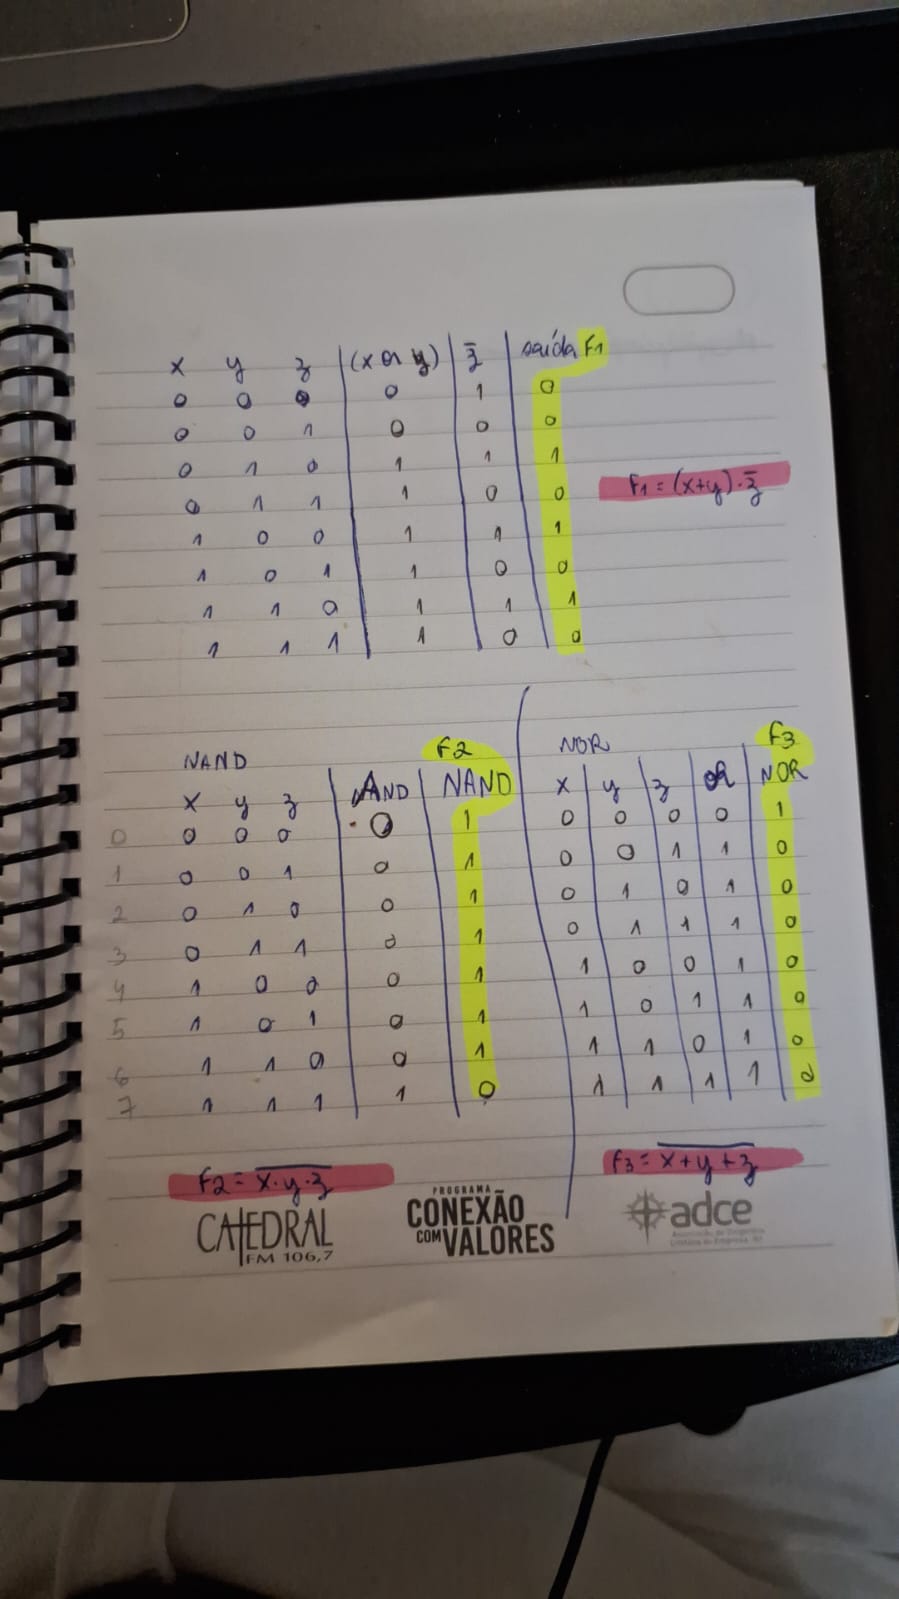 x y z (x or y) z̅ saída F1
0 0 0 0 1 0
0 0 1 0 0 0
0 1 0 1 1 1
0 1 1 1 0 0
1 0 0 1 1 1
1 0 1 1 0 0
1 1 0 1 1 1
1 1 1 1 0 0
F1 = (x+y)·z̅
NAND F2
x y z AND NAND
0 0 0 0 0 1
1 0 0 1 0 1
2 0 1 0 0 1
3 0 1 1 0 1
4 1 0 0 0 1
5 1 0 1 0 1
6 1 1 0 0 1
7 1 1 1 1 0
F2 = x̅·̅y̅·̅z̅
NOR F3
x y z OR NOR
0 0 0 0 1
0 0 1 1 0
0 1 0 1 0
0 1 1 1 0
1 0 0 1 0
1 0 1 1 0
1 1 0 1 0
1 1 1 1 0
F3 = x̅+̅y̅+̅z̅
CATEDRAL
FM 106,7
PROGRAMA
CONEXÃO
COM VALORES
adce